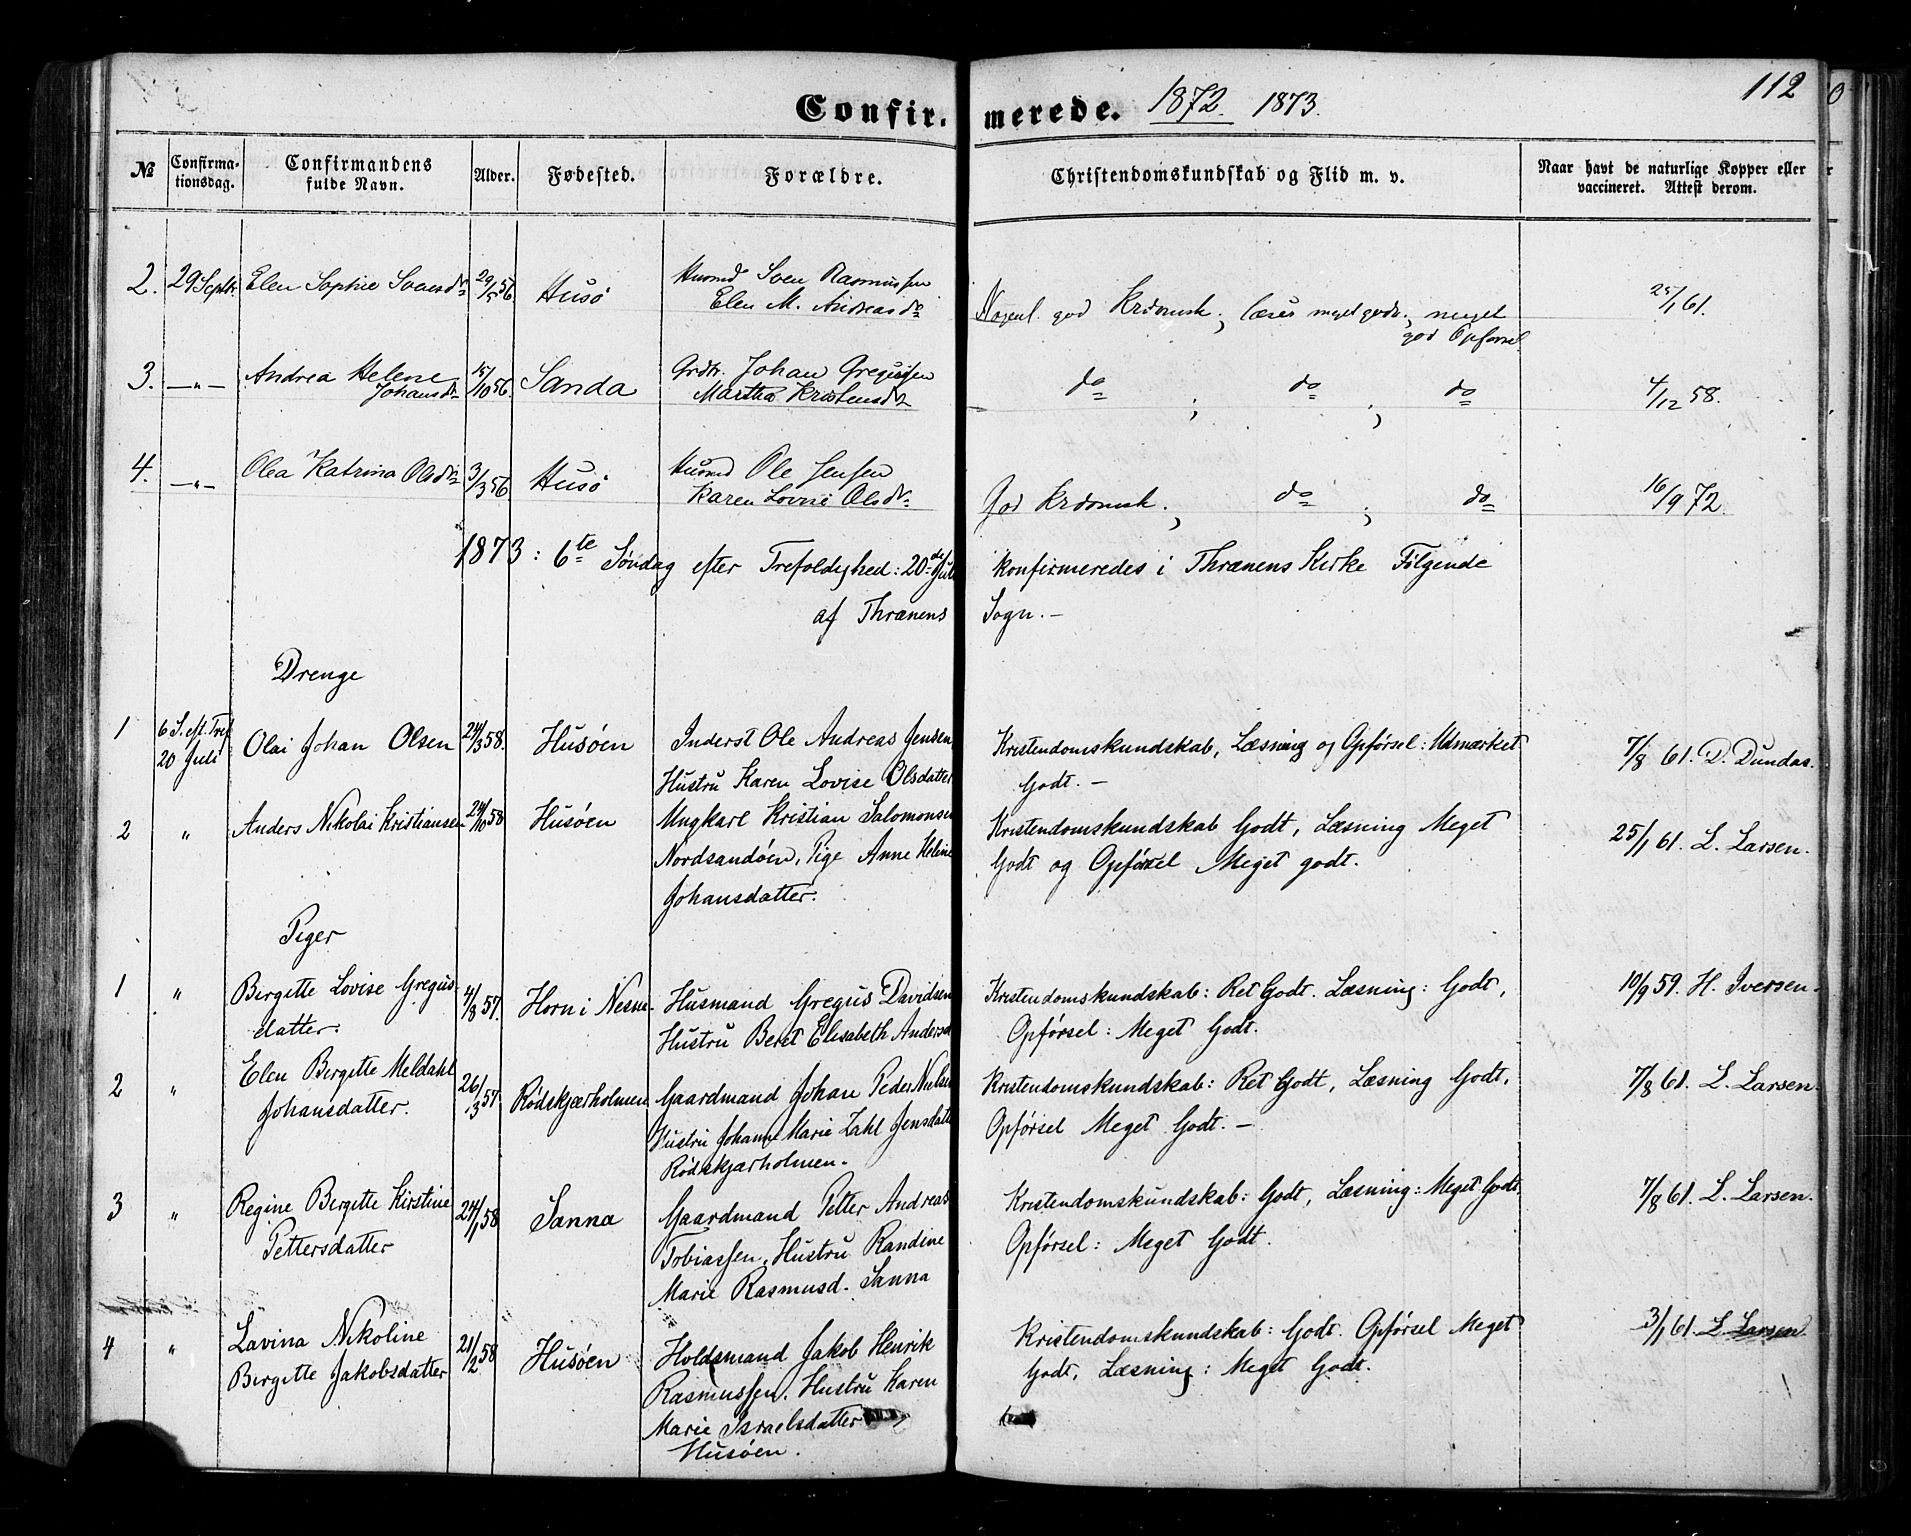 112
Confirmerede. 1872. 1873.
№ Confirmationsdag. Confirmandens fulde Navn. Alder. Fødested. Forældre. Christendomskundskab og Flid m. v. Naar havt de naturlige Kopper eller vaccineret. Attest derom.
2. 29 Septbr. Elen Sophie Svensdr 29/5 56 Husö Husmd Sven Rasmussen
Elen M. Andreasdr
Nogenl. god Krdomsk.; læser meget godt; meget
god Opførsel.
25/1 61.
3. —„— Andrea Helene
Johansdr
15/10 56. Sanda Grdbr. Johan Gregussen
Martha Kristensdr
do ; do ; do
4/12 58.
4. —„— Olea Katrina Olsdr 3/3 56 Husö Husmd Ole Jensen
Karen Lovise Olsdr
God Krdomsk. ; do ; do
16/9 72.
1873: 6te Søndag efter Trefoldighed: 20de Juli konfirmeredes i Thrænens Kirke Følgende
af Thrænens Sogn. —
Drenge
1 6 S. eft. Tref
20 Juli
Olai Johan Olsen 24/3 58. Husøen Inderst Ole Andreas Jensen,
Hustru Karen Lovise Olsdatter
Kristendomskundskab, Læsning og Opførsel: Udmærket
Godt. —
7/8 61. D. Dundas.
2 „ Anders Nikolai Kristiansen 24/10 58 Husøen Ungkarl Kristian Salomonsen
Nordsandøen, Pige Anne Heline
Johansdatter.
Kristendomskundskab Godt, Læsning Meget
Godt og Opførsel Meget godt.
25/1 61. L. Larsen.
Piger
1 „ Birgitte Lovise Gregus-
datter.
4/8 57. Horn i Nesne. Husmand Gregus Davidsen
Hustru Beret Elisabeth Andersd
Kristendomskundskab: Ret Godt. Læsning: Godt,
Opførsel: Meget Godt.
10/9 59. H. Iversen.
2 „ Elen Birgitte Meldahl
Johansdatter.
26/3 57 Rödskjærholmen Gaardmand Johan Peder Nielsen
Hustru Johanne Marie Zahl Jensdatter
Rödskjærholmen.
Kristendomskundskab: Ret Godt, Læsning Godt,
Opførsel Meget Godt. —
7/8 61. L. Larsen.
3 „ Regine Birgitte Kirstine
Pettersdatter
24/1 58 Sanna Gaardmand Petter Andreas
Tobiassen, Hustru Randine
Marie Rasmusd. Sanna
Kristendomskundskab: Godt, Læsning: Meget Godt,
Opførsel: Meget Godt.
7/8 61. L. Larsen.
4 „ Lavina Nikoline
Birgitte Jakobsdatter
21/2 58 Husøen Holdsmand Jakob Henrik
Rasmussen. Hustru Karen
Marie Israelsdatter
Husøen.
Kristendomskundskab: Godt. Opførsel Meget
Godt, Læsning: Meget Godt.
3/1 61. L. Larsen.